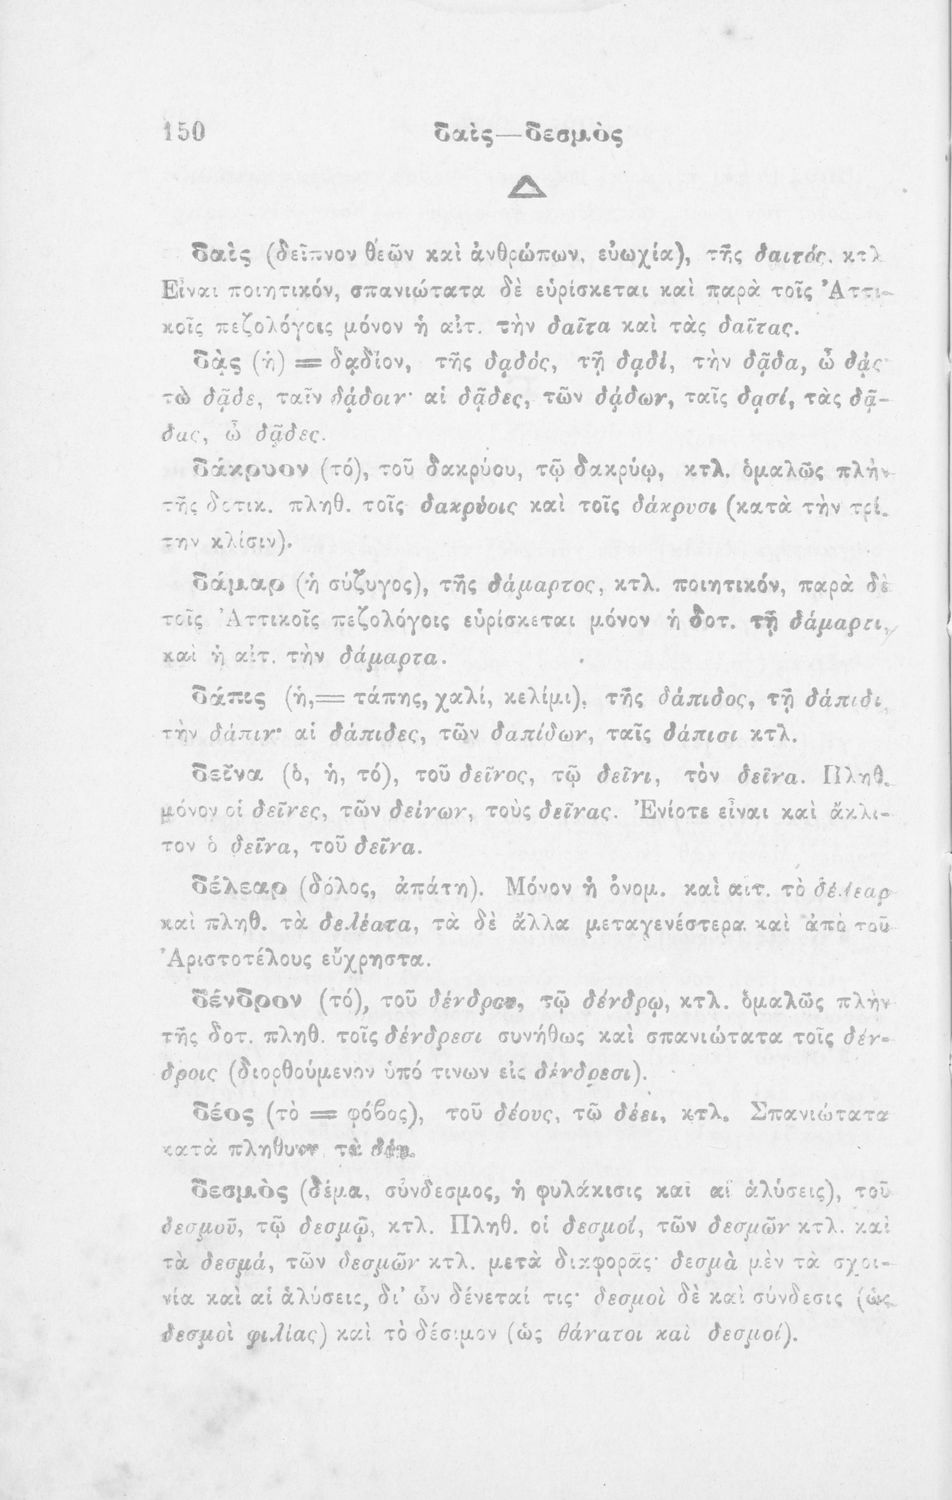 150 δαὶς—δεσμὸς
Δ
δαὶς (δεῖπνον θεῶν καὶ ἀνθρώπων, εὐωχία), τῆς δαιτός, κτλ
Εἶναι ποιητικόν, σπανιώτατα δὲ εὑρίσκεται καὶ παρὰ τοῖς Ἀττι-
κοῖς πεζολόγοις μόνον ἡ αἰτ. τὴν δαῖτα καὶ τὰς δαῖτας.
δᾲς (ἡ) = δᾳδίον, τῆς δᾳδός, τῇ δᾳδί, τὴν δᾷδα, ὦ δᾴς·
τὼ δᾷδε, ταῖν δᾴδοιν· αἱ δᾷδες, τῶν δᾴδων, ταῖς δᾳσί, τὰς δᾷ-
δας, ὦ δᾷδες.
δάκρυον (τό), τοῦ δακρύου, τῷ δακρύῳ, κτλ. ὁμαλῶς πλὴν
τῆς δοτικ. πληθ. τοῖς δακρύοις καὶ τοῖς δάκρυσι (κατὰ τὴν τρί.
την κλίσιν).
δάμαρ (ἡ σύζυγος), τῆς δάμαρτος, κτλ. ποιητικόν, παρὰ δὲ
τοῖς Ἀττικοῖς πεζολόγοις εὑρίσκεται μόνον ἡ δοτ. τῇ δάμαρτι,
καὶ ἡ αἰτ. τὴν δάμαρτα.
δάπις (ἡ,= τάπης, χαλί, κελίμι), τῆς δάπιδος, τῇ δάπιδι,
τὴν δάπιν· αἱ δάπιδες, τῶν δαπίδων, ταῖς δάπισι κτλ.
δεῖνα (ὁ, ἡ, τό), τοῦ δεῖνος, τῷ δεῖνι, τὸν δεῖνα. Πληθ.
μόνον οἱ δεῖνες, τῶν δείνων, τοὺς δεῖνας. Ἐνίοτε εἶναι καὶ ἄκλι-
τον ὁ δεῖνα, τοῦ δεῖνα.
δέλεαρ (δόλος, ἀπάτη). Μόνον ἡ ὀνομ. καὶ αιτ. τὸ δέλεαρ
καὶ πληθ. τὰ δελέατα, τὰ δὲ ἄλλα μεταγενέστερα καὶ ἀπὸ τοῦ
Ἀριστοτέλους εὔχρηστα.
δένδρον (τό), τοῦ δένδρου, τῷ δένδρῳ, κτλ. ὁμαλῶς πλὴν
τῆς δοτ. πληθ. τοῖς δένδρεσι συνήθως καὶ σπανιώτατα τοῖς δέν-
δροις (διορθούμενον ὑπό τινων εἰς δένδρεσι).
δέος (τὸ = φόβος), τοῦ δέους, τῷ δέει, κτλ. Σπανιώτατα
κατὰ πληθυν. τὰ δέη.
δεσμὸς (δέμα, σύνδεσμος, ἡ φυλάκισις καὶ αἱ ἁλύσεις), τοῦ
δεσμοῦ, τῷ δεσμῷ, κτλ. Πληθ. οἱ δεσμοί, τῶν δεσμῶν κτλ. καὶ
τὰ δεσμά, τῶν δεσμῶν κτλ. μετὰ διαφορᾶς· δεσμὰ μὲν τὰ σχοι-
νία καὶ αἱ ἁλύσεις, δι' ὧν δένεταί τις· δεσμοὶ δὲ καὶ σύνδεσις (ὡς
δεσμοὶ φιλίας) καὶ τὸ δέσιμον (ὡς θάνατοι καὶ δεσμοί).